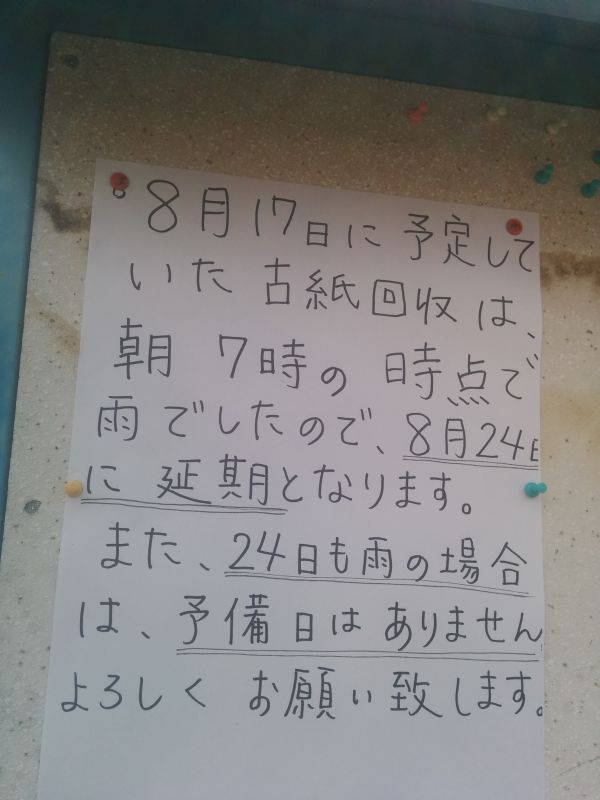 。8月17日に予定して
いた古紙回収は、
朝 7時の 時点で
雨でしたので、8月24日
に 延期となります。
また、24日も雨の場合
は、予備日はありません
よろしく お願い致します。